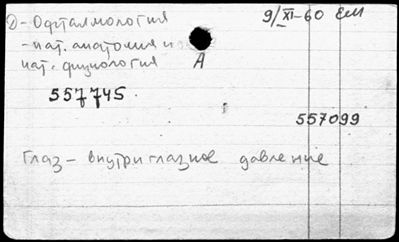 О-Офталмология 9/XI-60 ЕМ
-пат. анатомия и
пат. физиология А
557745.
557099
Глаз - внутриглазное давление